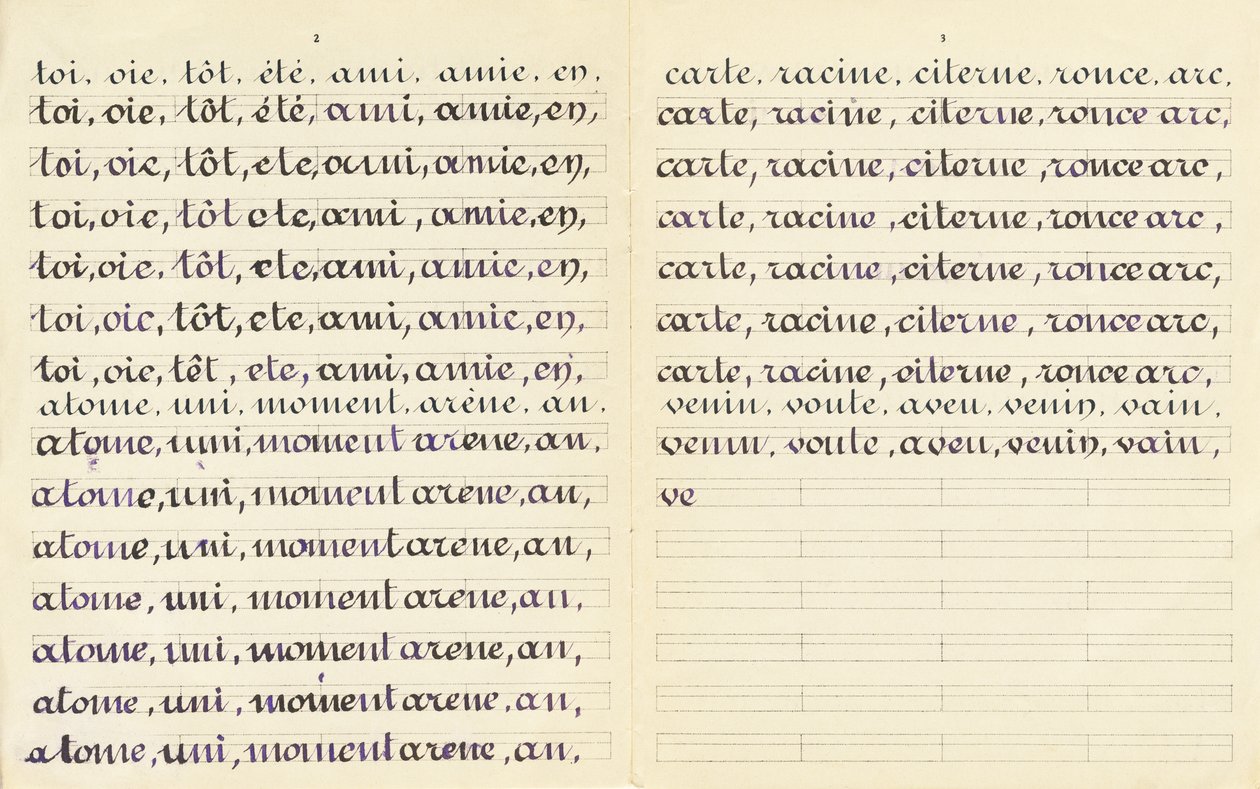 2
toi, oie, tôt, été, ami, amie, en,
toi, oie, tôt, été, ami, amie, en,
toi, oie, tôt, ete, ami, amie, en,
toi, oie, tôt ete, ami, amie, en,
toi, oie, tôt, ete, ami, amie, en,
toi, oie, tôt, ete, ami, amie, en,
toi, oie, têt, ete, ami, amie, en,
atome, uni, moment, arène, an,
atome, uni, moment arene, an,
atome, uni, moment arene, an,
atome, uni, moment arene, an,
atome, uni, moment arene, an,
atome, uni, moment arene, an,
atome, uni, moment arene, an,
atome, uni, moment arene, an,
3
carte, racine, citerne, ronce, arc,
carte, racine, citerne, ronce arc,
carte, racine, citerne, ronce arc,
carte, racine, citerne, ronce arc,
carte, racine, citerne, ronce arc,
carte, racine, citerne, ronce arc,
carte, racine, citerne, ronce arc,
venin, voute, aveu, venin, vain,
venin, voute, aveu, venin, vain,
ve